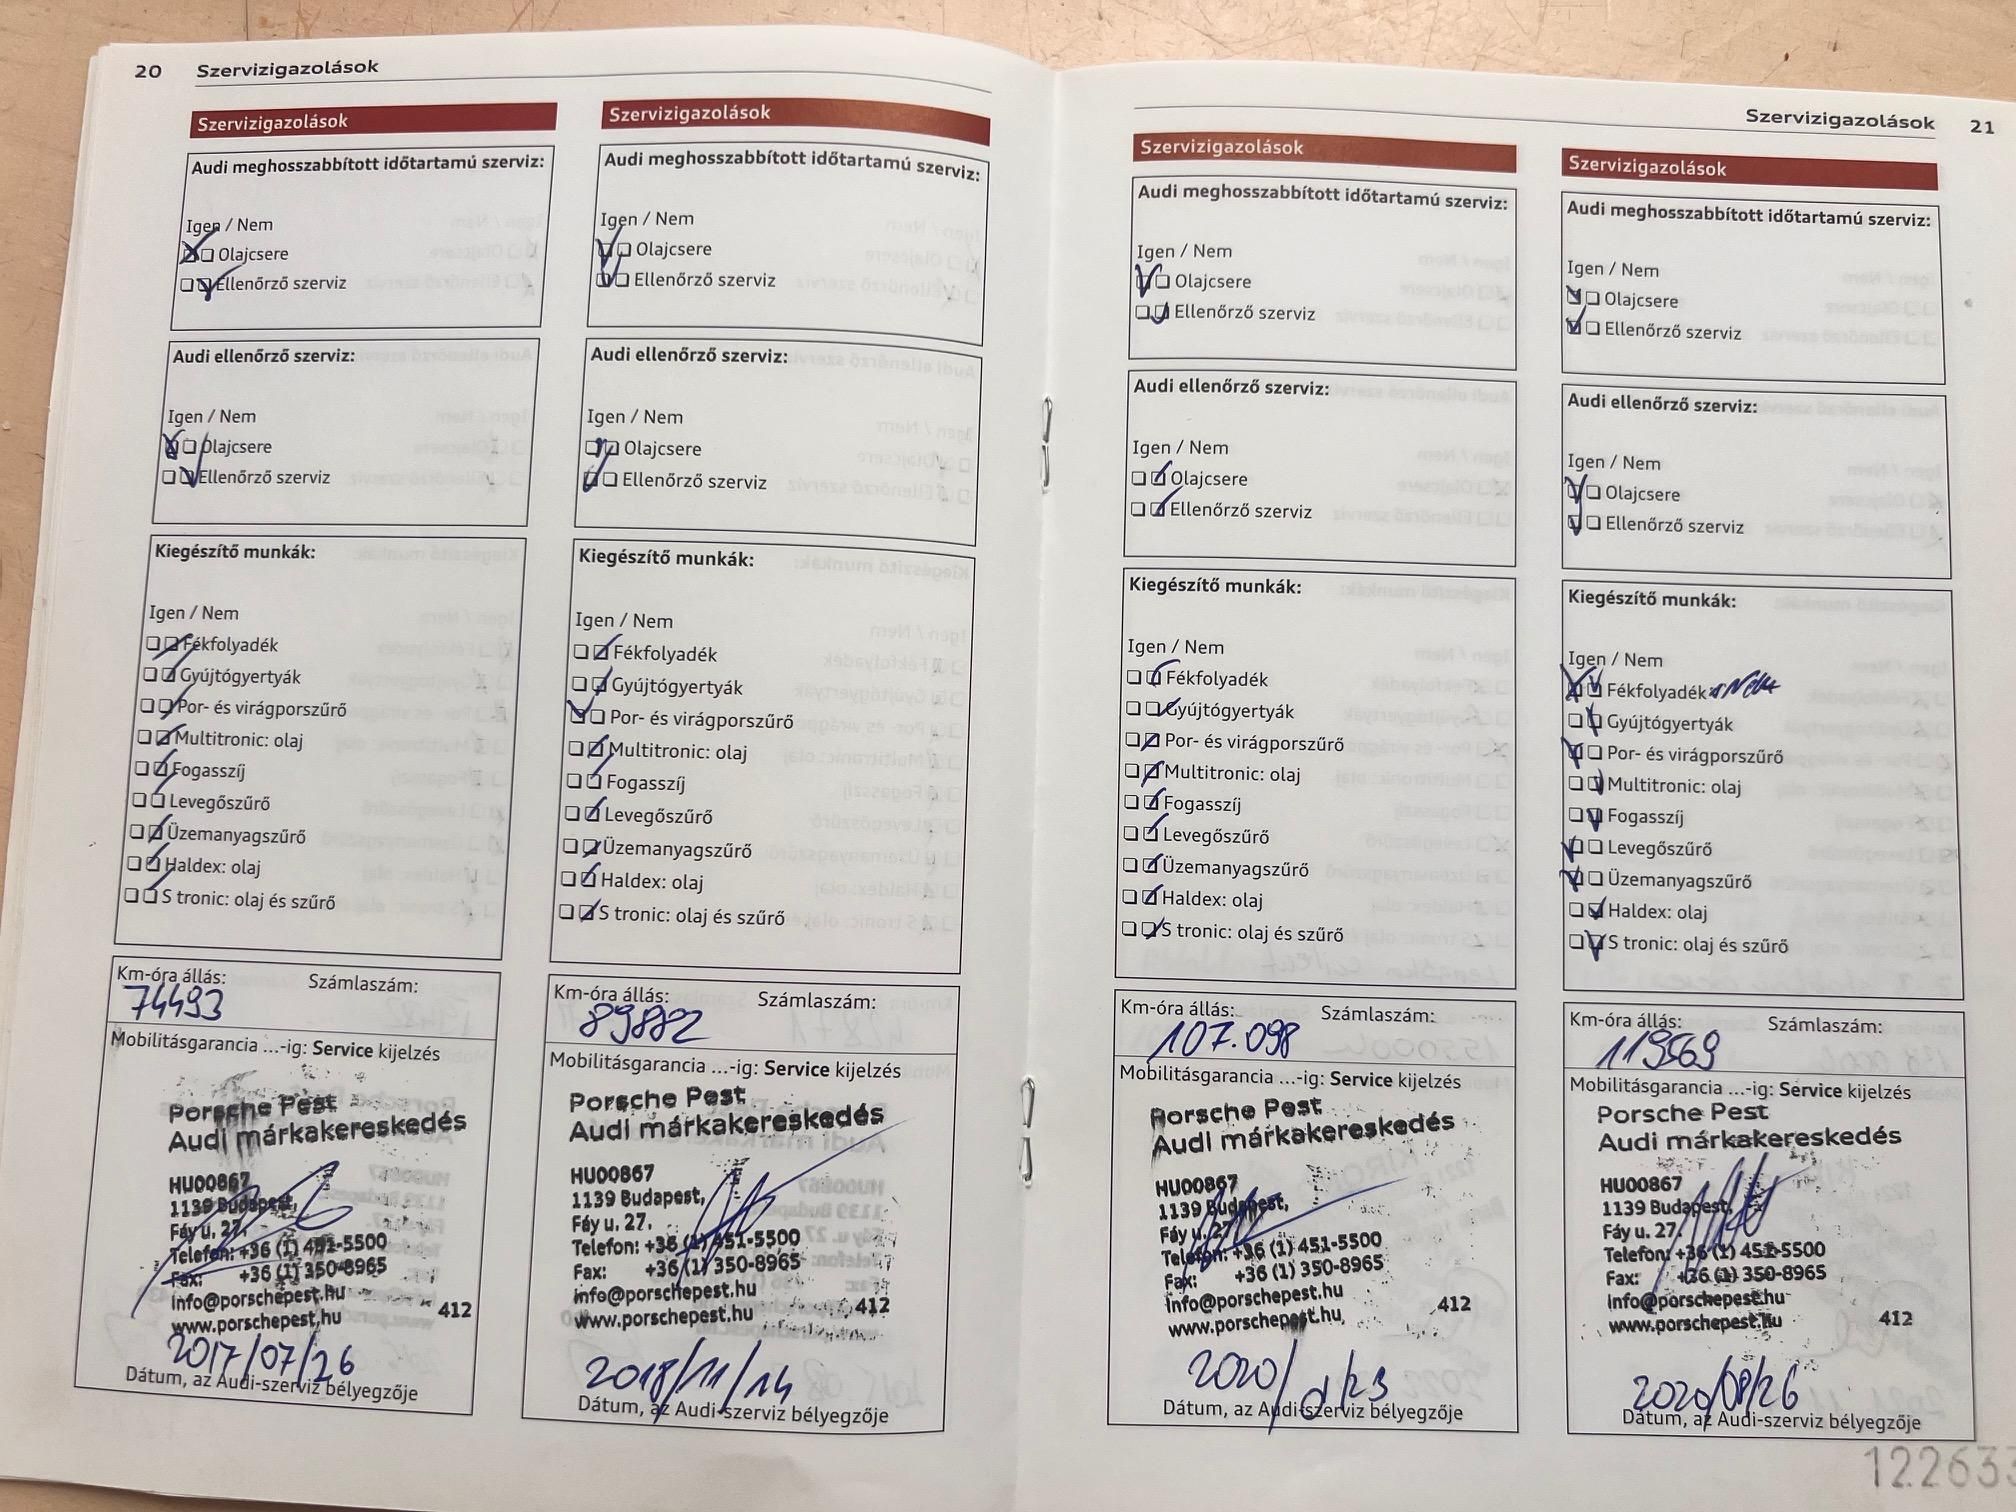 20 Szervizigazolások
Szervizigazolások
Audi meghosszabbított időtartamú szerviz:
Igen / Nem
Olajcsere
Ellenőrző szerviz
Audi ellenőrző szerviz:
Igen / Nem
Olajcsere
Ellenőrző szerviz
Kiegészítő munkák:
Igen / Nem
Fékfolyadék
Gyújtógyertyák
Por- és virágporszűrő
Multitronic: olaj
Fogasszíj
Levegőszűrő
Üzemanyagszűrő
Haldex: olaj
S tronic: olaj és szűrő
Km-óra állás: Számlaszám:
74493
Mobilitásgarancia ...-ig: Service kijelzés
Porsche Pest
Audi márkakereskedés
HU00867
1139 Budapest,
Fáy u. 27.
Telefon: +36 (1) 451-5500
Fax: +36 (1) 350-8965
info@porschepest.hu
www.porschepest.hu 412
2017/07/26
Dátum, az Audi-szerviz bélyegzője
Szervizigazolások
Audi meghosszabbított időtartamú szerviz:
Igen / Nem
Olajcsere
Ellenőrző szerviz
Audi ellenőrző szerviz:
Igen / Nem
Olajcsere
Ellenőrző szerviz
Kiegészítő munkák:
Igen / Nem
Fékfolyadék
Gyújtógyertyák
Por- és virágporszűrő
Multitronic: olaj
Fogasszíj
Levegőszűrő
Üzemanyagszűrő
Haldex: olaj
S tronic: olaj és szűrő
Km-óra állás: Számlaszám:
89882
Mobilitásgarancia ...-ig: Service kijelzés
Porsche Pest
Audi márkakereskedés
HU00867
1139 Budapest,
Fáy u. 27.
Telefon: +36 (1) 451-5500
Fax: +36 (1) 350-8965
info@porschepest.hu
www.porschepest.hu 412
2018/11/14
Dátum, az Audi-szerviz bélyegzője
Szervizigazolások 21
Szervizigazolások
Audi meghosszabbított időtartamú szerviz:
Igen / Nem
Olajcsere
Ellenőrző szerviz
Audi ellenőrző szerviz:
Igen / Nem
Olajcsere
Ellenőrző szerviz
Kiegészítő munkák:
Igen / Nem
Fékfolyadék
Gyújtógyertyák
Por- és virágporszűrő
Multitronic: olaj
Fogasszíj
Levegőszűrő
Üzemanyagszűrő
Haldex: olaj
S tronic: olaj és szűrő
Km-óra állás: Számlaszám:
107.098
Mobilitásgarancia ...-ig: Service kijelzés
Porsche Pest
Audi márkakereskedés
HU00867
1139 Budapest,
Fáy u. 27.
Telefon: +36 (1) 451-5500
Fax: +36 (1) 350-8965
info@porschepest.hu
www.porschepest.hu 412
Dátum, az Audi-szerviz bélyegzője
Szervizigazolások
Audi meghosszabbított időtartamú szerviz:
Igen / Nem
Olajcsere
Ellenőrző szerviz
Audi ellenőrző szerviz:
Igen / Nem
Olajcsere
Ellenőrző szerviz
Kiegészítő munkák:
Igen / Nem
Fékfolyadék
Gyújtógyertyák
Por- és virágporszűrő
Multitronic: olaj
Fogasszíj
Levegőszűrő
Üzemanyagszűrő
Haldex: olaj
S tronic: olaj és szűrő
Km-óra állás: Számlaszám:
119569
Mobilitásgarancia ...-ig: Service kijelzés
Porsche Pest
Audi márkakereskedés
HU00867
1139 Budapest,
Fáy u. 27.
Telefon: +36 (1) 451-5500
Fax: +36 (1) 350-8965
info@porschepest.hu
www.porschepest.hu 412
2020/08/26
Dátum, az Audi-szerviz bélyegzője